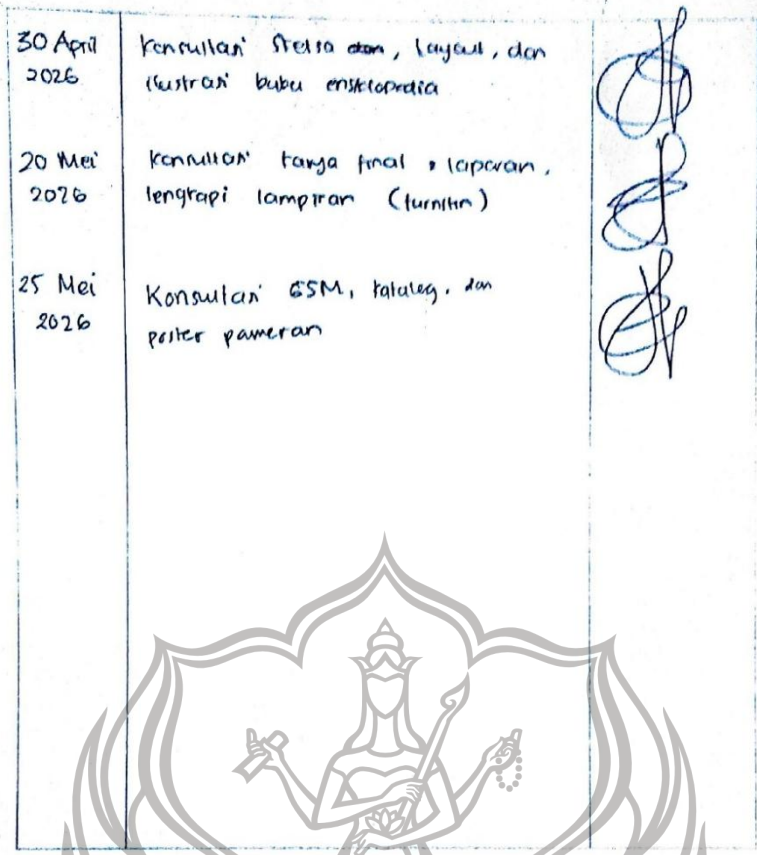 30 April
2026
Konsultasi Sketsa dan, layout, dan
ilustrasi buku ensiklopedia
20 Mei
2026
Konsultasi karya final, laporan,
lengkapi lampiran (turnitin)
25 Mei
2026
Konsultasi GSM, katalog, dan
poster pameran